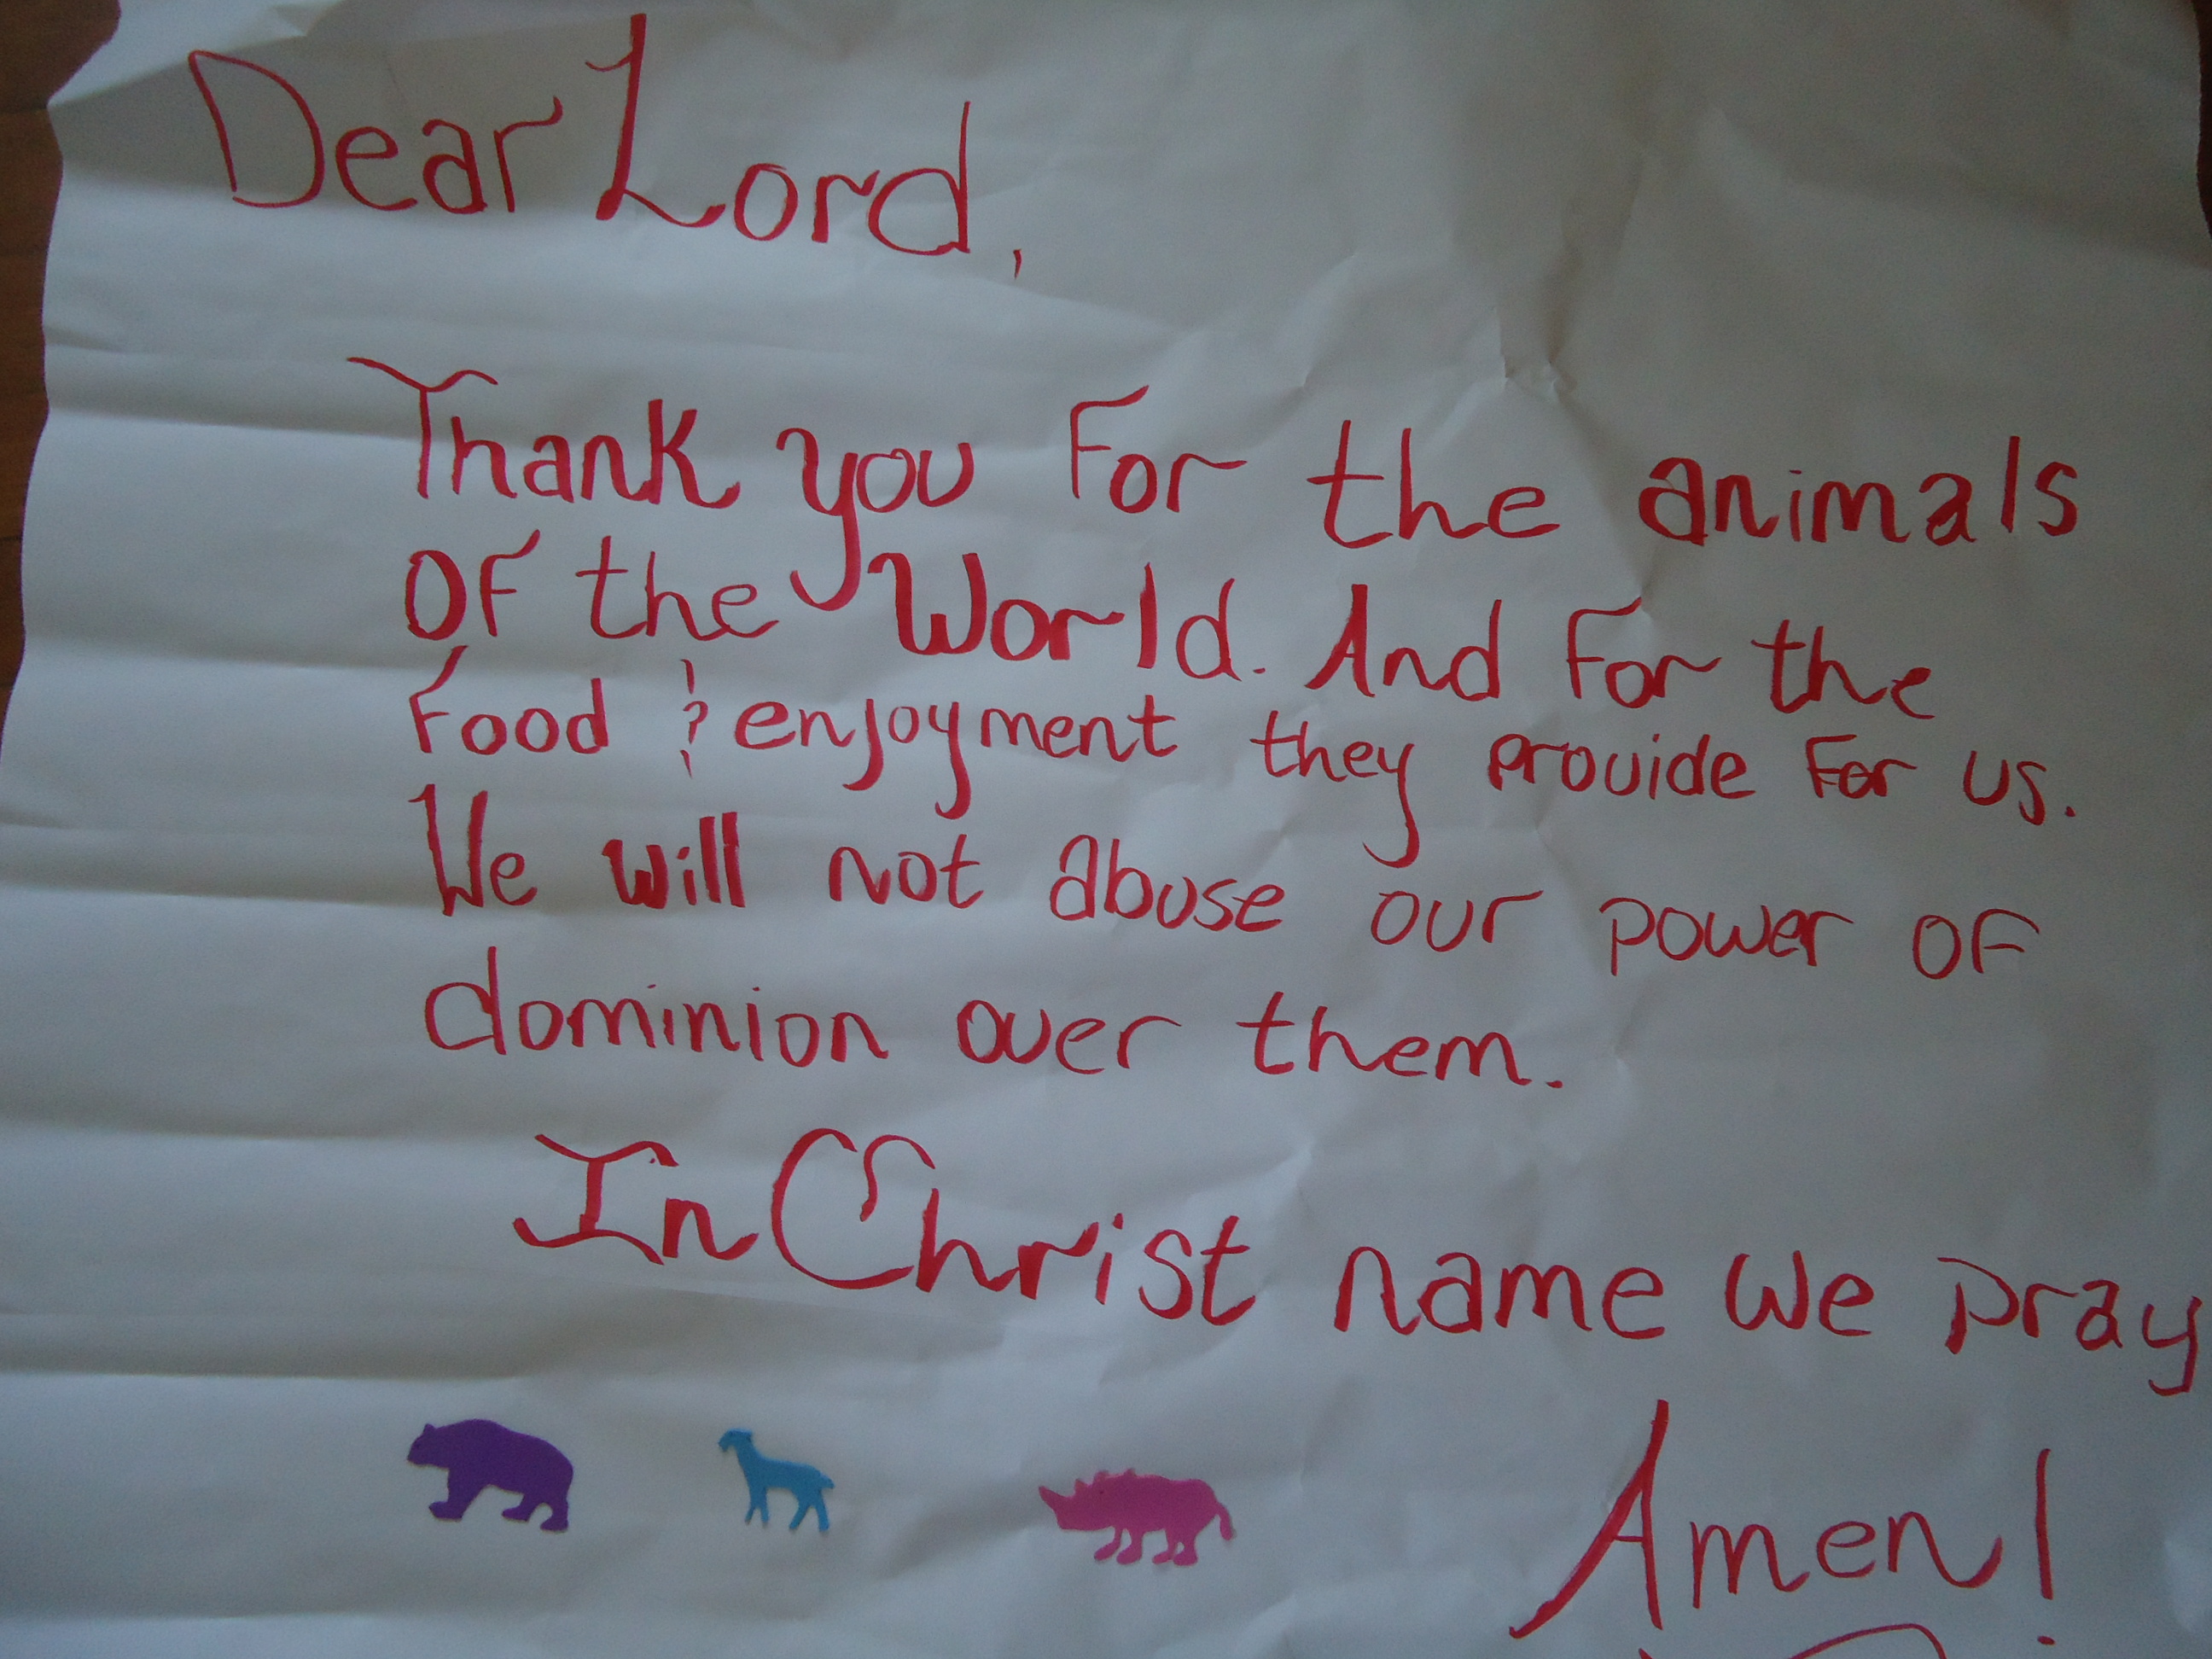 Dear Lord,
Thank you For the animals
OF the World. And For the
Food & enjoyment they provide For us.
We will not abuse our power of
dominion over them.
In Christ name we pray
Amen!